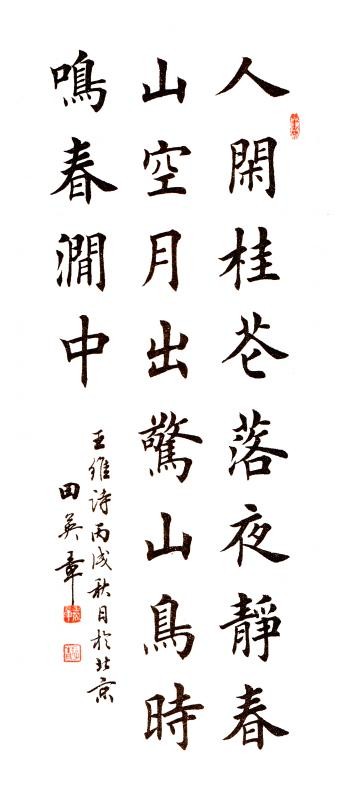 人閑桂花落夜靜春
山空月出驚山鳥時
鳴春澗中
王維詩丙戌秋月於北京
田英章